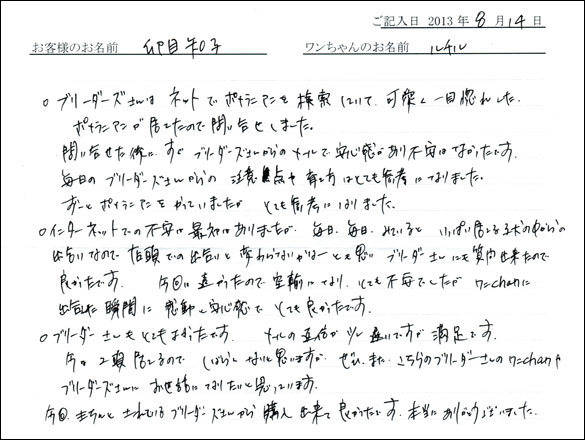 ご記入日 2013 年 8 月 14 日
お客様のお名前 印目知子 ワンちゃんのお名前 ルチル
○ ブリーダーズさんは ネットでポメラニアンを検索していて、可愛く一目惚れした
ポメラニアンが居たので問い合せしました。
問い合せた後に すぐ ブリーダーズさんからのメールで安心感があり不安はなかったです。
毎日のブリーダーズさんからの 注意点や育て方はとても参考になりました。
ずーとポメラニアンをかっていましたが とても参考になりました。
○ インターネットでの不安は最初はありましたが、毎日、毎日、みていると いっぱい居る子犬の中からの
出合いなので 店頭での出合いと変わらないかなーとも思い ブリーダーさんにも質問出来たので
良かったです。 今回は遠かったので空輸になり、とても不安でしたが ワンchanに
出会えた瞬間に 感動と安心感で とても良かったです。
○ ブリーダーさんもとてもよかったです。 メールの返信が少し遅いですが 満足です。
今は2頭居てるので しばらくはないと思いますが ぜひ、また、こちらのブリーダーさんのワンchanや
ブリーダーズさんに お世話になりたいと思っています。
今回、きちんとされているブリーダーズさんから購入出来て良かったです。本当にありがとうございました。